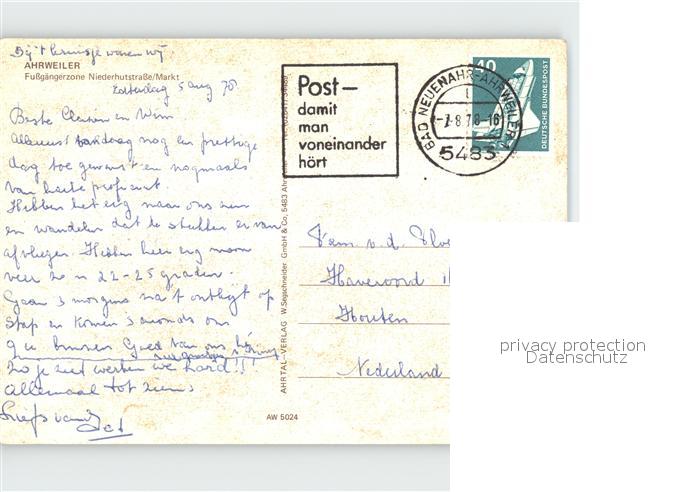 Bij 't kruisje waren wij
AHRWEILER
Fußgängerzone Niederhutstraße/Markt
Zaterdag 5 aug 78
Beste en Wim
Allereerst vandaag nog een prettige
dag toe gewenst en nogmaals
van harte proficiat.
Hebben het erg naar ons zin
en wandelen dat de stukken er van
afvliegen. Hebben heel erg mooi
weer zo'n 22-25 graden.
Gaan 's morgens na 't ontbijt op
stap en komen 's avonds om
9 u binnen Goed van ons hè
zo je ziet werken we hard!!
Allemaal tot ziens
Liefs van
AHRTAL-VERLAG W. Segschneider GmbH & Co, 5483
AW 5024
Post –
damit
man
voneinander
hört
BAD NEUENAHR-AHRWEILER 1
-7.8.78-16
5483
40
DEUTSCHE BUNDESPOST
Fam. v.d.
Haveroord
Houten
Nederland
privacy protection
Datenschutz